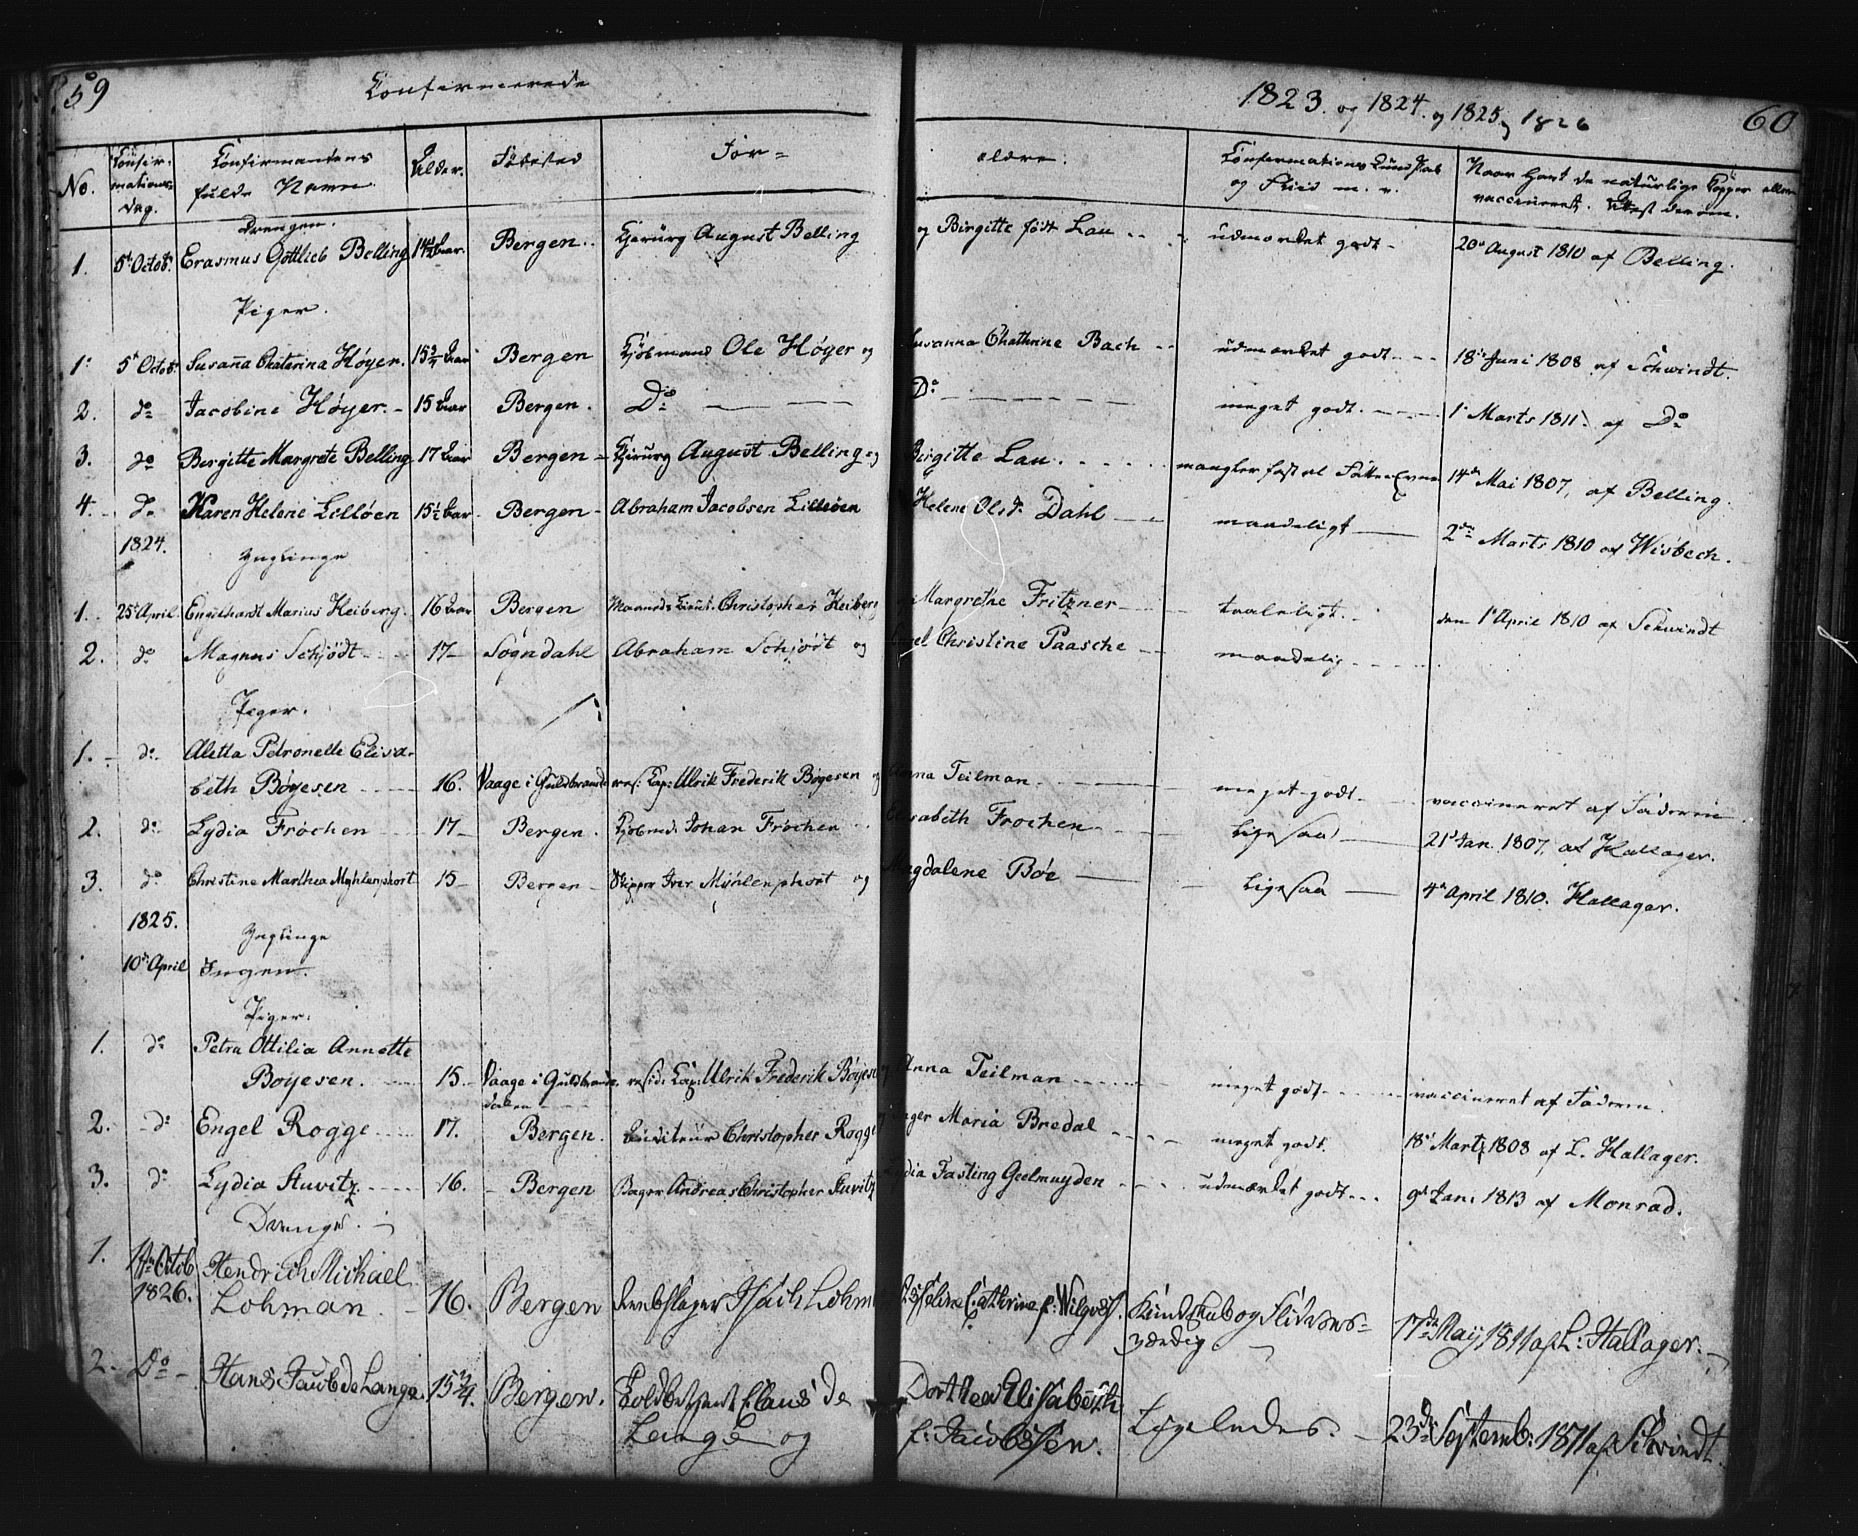 59 Confirmerede 1823. og 1824. og 1825 og 1826 60
No. Confirmations- dag. Confirmandens fulde Navn. Alder. Fødested For- ældre. Confirmationus Kundskab og Flid m. v. Naar havt de naturlige Kopper eller vaccineret. Attest derom.
Drenge.
1. 5t Octobr. Erasmus Gottlieb Belling 14½ Aar. Bergen.. Chirurg August Belling og Birgitte født Lau udmærket godt 20de August 1810 af Belling.
Piger.
1. 5t Octobr. Susanna Chatarina Høyer. 15¾ Aar Bergen Kjøbmand Ole Høyer og Susanna Chathrine Bach udmærket godt 18de Juni 1808 af Schwindt.
2. do Jacobine Høyer. 15 Aar Bergen. Do Do meget godt. 1t Marts 1811. af Do
3. do Bergitte Margrete Belling 17 Aar Bergen Chirurg August Belling og Birgitte Lau. mangler fast al Fatte Evne 14de Mai 1807, af Belling.
4. do Karen Helene Lilløen 15½ Aar Bergen Abraham Jacobsen Lilløen Helene Olsdr Dahl maadeligt 2den Marts 1810 af Wisbech.
1824.
Ynglinge
1. 25t April Engelhardt Marius Heiberg. 16 Aar Bergen Christopher Heiberg Margrethe Fritzner taaleligt. den 1t April 1810 af Schwindt
2. do Magnus Schjødt 17 Sogndahl Abraham Schjødt og Engel Christine Paasche maadelig
Piger.
1. do Aletta Petronelle Elisa-
beth Bøyesen 16. Vaage i Guldbrandsd res: Cap: Ulrik Frederik Bøyesen og Anna Teilman meget godt vaccineret af Faderen
2. do Lydia Frochen 17 Bergen. Kjøbmd Johan Frochen Elisabeth Frochen ligesaa 21t Jan. 1807, af Hallager.
3. do Christine Marthea Myhlenphort 15 Bergen Skipper Iver Myhlenphort og Magdalene Bøe ligesaa 4de April 1810. Hallager.
1825.
Ynglinge
10de April Ingen.
Piger.
1. do Petra Ottilia Annette
Boyesen. 15. Vaage i Guldbrands- resid: Cap: Ulrik Frederik Bøyesen Anna Teilman meget godt vaccineret af Faderen.
dalen
2. do Engel Rogge 17. Bergen. Auditeur Christopher Rogge Inger Maria Bredal meget godt. 18de Marts 1808 af L. Hallager.
3. do Lydia Stuvitz. 16. Bergen Bager Andreas Christopher Stuvitz Lydia Fasting Geelmuyden udmærket godt 9de Jan: 1813 af Monrad.
Drenge.
1. Octob Hendrich Michael
1826. Lohman. 16. Bergen Reebslager Isach Lohman Cathrine f: Kundskab og Flid roes- 17de May 1811 af L: Hallager.
værdig
2. Do Hans Jacob de Lange. 15¾. Bergen. Claus de Dorthea Elisabeth Ligeledes. 23de Septemb: 1811 af Schvindt.
Lange og f: Jacobssen.